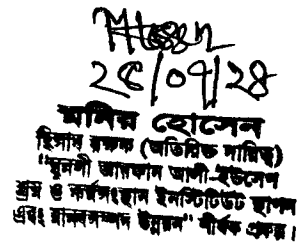 ২৫/০৭/২৪
মনির হোসেন
হিসাব রক্ষক (অতিরিক্ত দায়িত্ব)
"খুলনা আরকান আলী-ইউসেপ
শ্রম ও কর্মসংস্থান ইনস্টিটিউট স্থাপন
এবং মানবসম্পদ উন্নয়ন" শীর্ষক প্রকল্প।